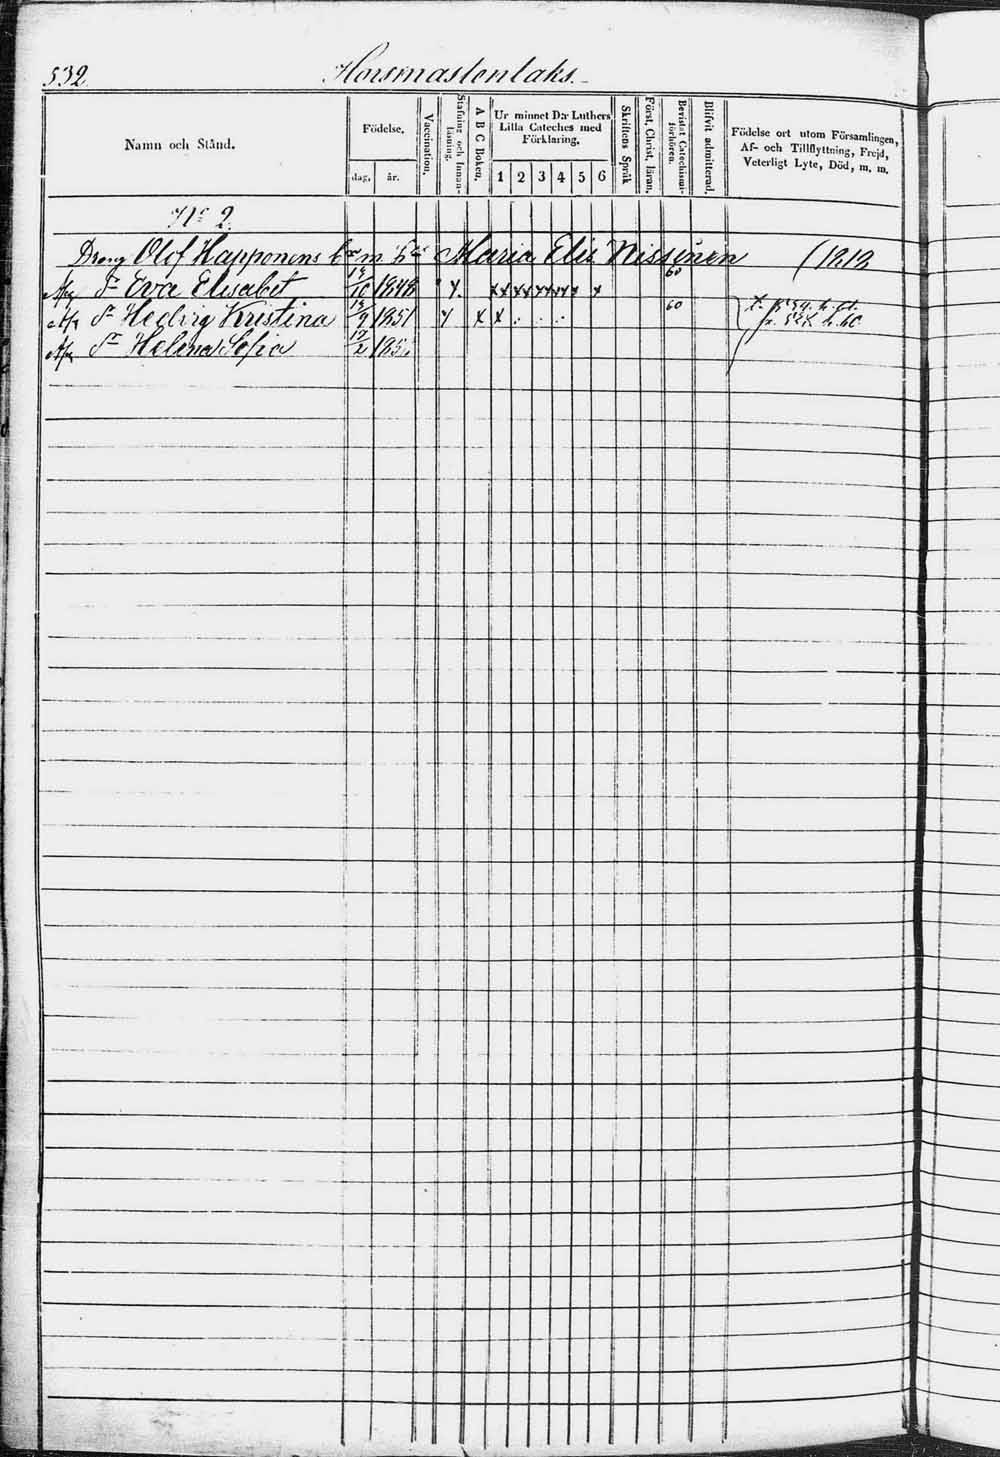 532. Horsmastenlaks.
Namn och Stånd.
Födelse.
dag. år.
Vaccination.
Stafning och Innan-läsning.
A B C Boken.
Ur minnet D:r Luthers
Lilla Cateches med
Förklaring.
1 2 3 4 5 6
Skriftens Språk
Först. Christ. läran.
Bevistat Catechismi-förhören.
Blifvit admitterad.
Födelse ort utom Församlingen,
Af- och Tillflyttning, Frejd,
Veterligt Lyte, Död, m. m.
No 2.
Dreng Olof Kapponens m. Maria Elis Nissinen (1212
Eva Elisabet 10 1848 60
Hedvig Kristina 9 1851 60
Helena Sofia 2 185